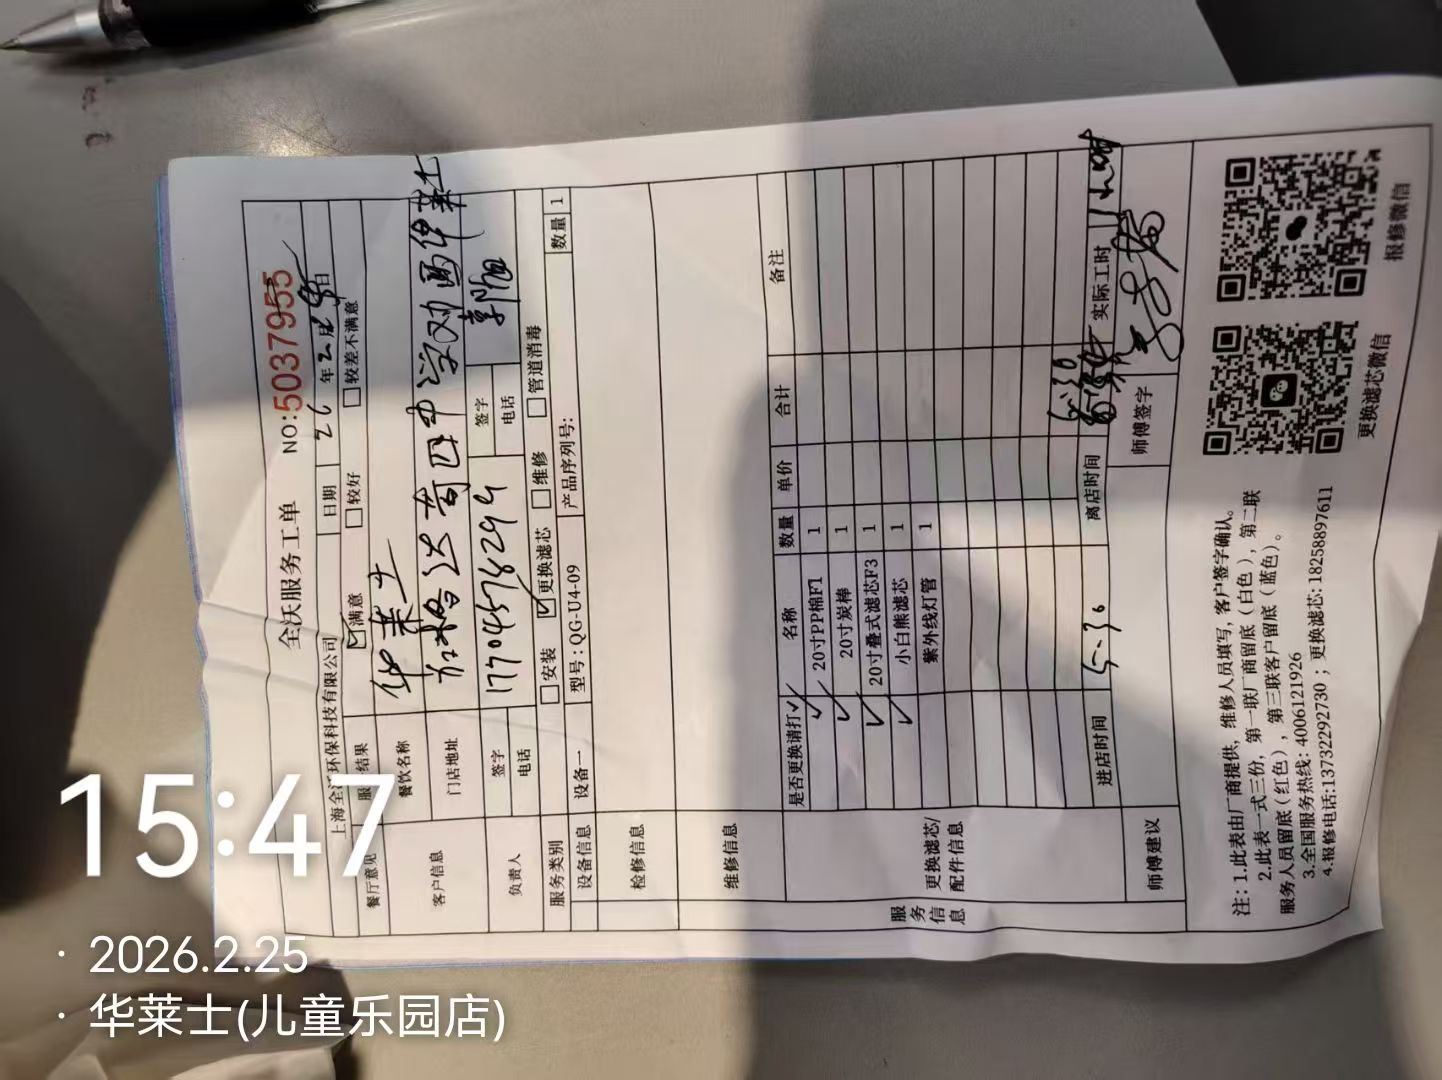 全沃服务工单 NO:5037955
上海全沃环保科技有限公司 日期 26年2月25日
餐厅意见 服务结果 ☑满意 □较好 □较差不满意
客户信息 餐饮名称 华莱士
门店地址 加格达奇四中学对面华莱士
负责人 签字 签字
电话 17704578294 电话
服务类别 □安装 ☑更换滤芯 □维修 □管道消毒
设备信息 设备一 型号:QG-U4-09 产品序列号: 数量 1
检修信息
维修信息
服务信息
更换滤芯/配件信息
是否更换请打✓ 名称 数量 单价 合计 备注
✓ 20寸PP棉F1 1
✓ 20寸炭棒 1
✓ 20寸叠式滤芯F3 1
✓ 小白熊滤芯 1
紫外线灯管 1
进店时间 5:30 离店时间 6:30 实际工时 1小时
师傅建议 师傅签字
注:1.此表由厂商提供,维修人员填写,客户签字确认。
2.此表一式三份,第一联厂商留底(白色),第二联
服务人员留底(红色),第三联客户留底(蓝色)。
3.全国服务热线:4006121926
4.报修电话:13732292730;更换滤芯:18258897611
更换滤芯微信
报修微信
15:47
· 2026.2.25
· 华莱士(儿童乐园店)